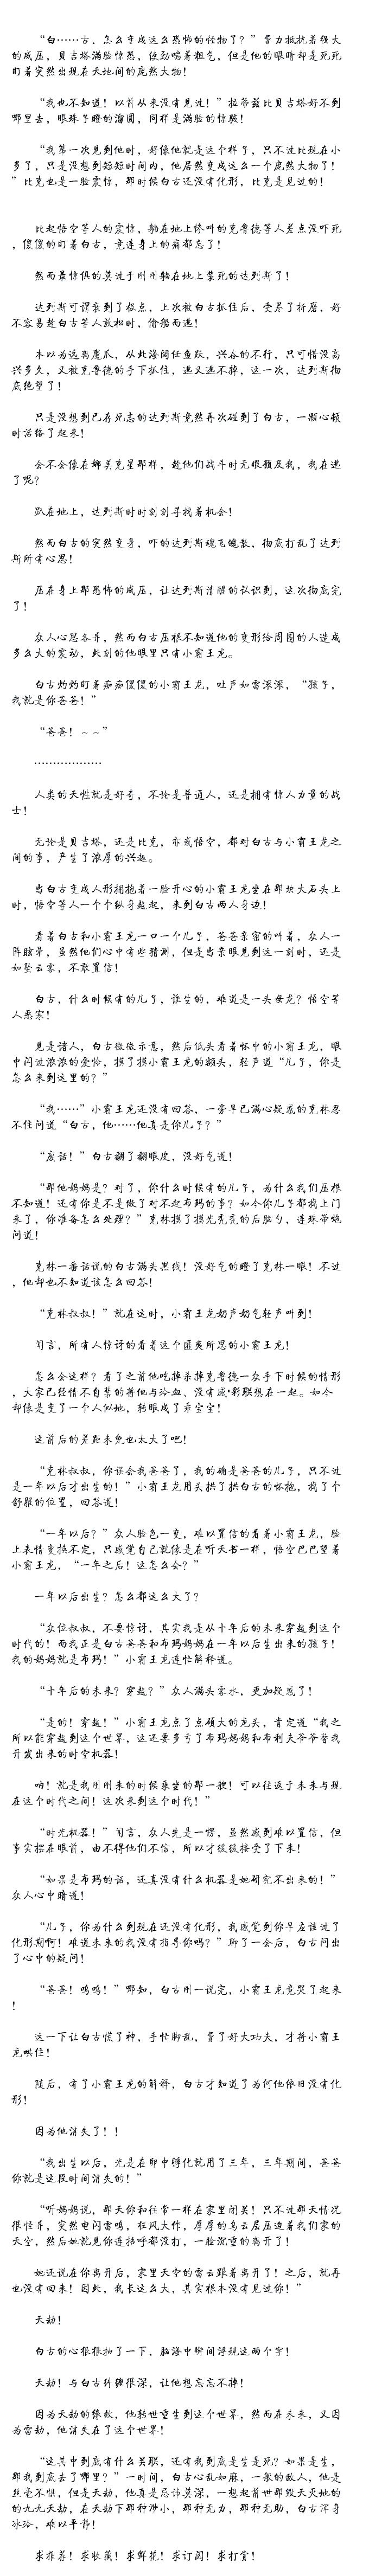 “白……古，怎么变成这么恐怖的怪物了？”费力抵抗着强大
的威压，贝吉塔满脸惊恐，低劲喘着粗气，但是他的眼睛却是死死
盯着突然出现在天地间的庞然大物！
“我也不知道！以前从来没有见过！”拉蒂兹比贝吉塔好不到
哪里去，眼珠子瞪的溜圆，同样是满脸的惊骇！
“我第一次见到他时，好像他就是这个样子，只不过比现在小
多了，只是没想到短短时间内，他居然变成这么一个庞然大物了！
”比克也是一脸震惊，那时候白古还没有化形，比克是见过的！
比起悟空等人的震惊，躺在地上惨叫的克鲁德等人差点没吓死
，傻傻的盯着白古，竟连身上的痛都忘了！
然而最惊惧的莫过于刚刚躺在地上装死的达列斯了！
达列斯可谓衰到了极点，上次被白古抓住后，受尽了折磨，好
不容易趁白古等人放松时，偷船而逃！
本以为远离魔爪，从此海阔任鱼跃，兴奋的不行，只可惜没高
兴多久，又被克鲁德的手下抓住，逃又逃不掉，这一次，达列斯彻
底绝望了！
只是没想到已存死志的达列斯竟然再次碰到了白古，一颗心顿
时活络了起来！
会不会像在娜美克星那样，趁他们战斗时无暇顾及我，我在逃
了呢？
趴在地上，达列斯时时刻刻寻找着机会！
然而白古的突然变身，吓的达列斯魂飞魄散，彻底打乱了达列
斯所有心思！
压在身上那恐怖的威压，让达列斯清醒的认识到，这次彻底完
了！
众人心思各异，然而白古压根不知道他的变形给周围的人造成
多么大的震动，此刻的他眼里只有小霸王龙。
白古灼灼盯着痴痴傻傻的小霸王龙，吐声如雷滚滚，“孩子，
我就是你爸爸！”
“爸爸！～～”
………………
人类的天性就是好奇，不论是普通人，还是拥有惊人力量的战
士！
无论是贝吉塔，还是比克，亦或悟空，都对白古与小霸王龙之
间的事，产生了浓厚的兴趣。
当白古变成人形拥抱着一脸开心的小霸王龙坐在那块大石头上
时，悟空等人一个个纵身越起，来到白古两人身边！
看着白古和小霸王龙一口一个儿子，爸爸亲密的叫着，众人一
阵眩晕，虽然他们心中有些猜测，但是当亲眼见到这一刻时，还是
如坠云雾，不敢置信！
白古，什么时候有的儿子，谁生的，难道是一头母龙？悟空等
人恶寒！
见是诸人，白古微微示意，然后低头看着怀中的小霸王龙，眼
中闪过浓浓的爱怜，摸了摸小霸王龙的额头，轻声道“儿子，你是
怎么来到这里的？”
“我……”小霸王龙还没有回答，一旁早已满心疑惑的克林忍
不住问道“白古，他……他真是你儿子？”
“废话！”白古翻了翻眼皮，没好气道！
“那他妈妈是？对了，你什么时候有的儿子，为什么我们压根
不知道！还有你是不是做了对不起布玛的事？如今你儿子都找上门
来了，你准备怎么处理？”克林摸了摸光秃秃的后脑勺，连珠带炮
问道！
克林一番话说的白古满头黑线！没好气的瞪了克林一眼！不过
，他却也不知道该怎么回答！
“克林叔叔！”就在这时，小霸王龙奶声奶气轻声叫到！
闻言，所有人惊讶的看着这个匪夷所思的小霸王龙！
怎么会这样？看了之前他吃掉杀掉克鲁德一众手下时候的情形
，大家已经情不自禁的将他与冷血、没有感·彩联想在一起。如今
却像是变了一个人似地，转眼成了乖宝宝！
这前后的差距未免也太大了吧！
“克林叔叔，你误会我爸爸了，我的确是爸爸的儿子，只不过
是一年以后才出生的！”小霸王龙用头拱了拱白古的怀抱，找了个
舒服的位置，回答道！
“一年以后？”众人脸色一变，难以置信的看着小霸王龙，脸
上表情变换不定，只感觉自己就像是在听天书一样，悟空巴巴望着
小霸王龙，“一年之后！这怎么会？”
一年以后出生？怎么都这么大了？
“众位叔叔，不要惊讶，其实我是从十年后的未来穿越到这个
时代的！而我正是白古爸爸和布玛妈妈在一年以后生出来的孩子！
我的妈妈就是布玛！”小霸王龙连忙解释道。
“十年后的未来？穿越？”众人满头雾水，更加疑惑了！
“是的！穿越！”小霸王龙点了点硕大的龙头，肯定道“我之
所以能穿越到这个世界，这还要多亏了布玛妈妈和布利夫爷爷替我
开发出来的时空机器！
哟！就是我刚刚来的时候乘坐的那一艘！可以往返于未来与现
在这个时代之间！这次来到这个时代！”
“时光机器！”闻言，众人先是一愣，虽然感到难以置信，但
事实摆在眼前，由不得他们不信，所以才缓缓接受了下来！
“如果是布玛的话，还真没有什么机器是她研究不出来的！”
众人心中暗道！
“儿子，你为什么到现在还没有化形，我感觉到你早应该过了
化形期啊！难道未来的我没有指导你吗？”聊了一会后，白古问出
了心中的疑问！
“爸爸！呜呜！”哪知，白古刚一说完，小霸王龙竟哭了起来
！
这一下让白古慌了神，手忙脚乱，费了好大功夫，才将小霸王
龙哄住！
随后，有了小霸王龙的解释，白古才知道了为何他依旧没有化
形！
因为他消失了！！
“我出生以后，光是在卵中孵化就用了三年，三年期间，爸爸
你就是这段时间消失的！”
“听妈妈说，那天你和往常一样在家里闭关！只不过那天情况
很怪异，突然电闪雷鸣，狂风大作，厚厚的乌云层压迫着我们家的
天空，然后她就见你连招呼都没打，一脸沉重的离开了！
她还说在你离开后，家里天空的雷云跟着离开了！之后，就再
也没有回来！因此，我长这么大，其实根本没有见过你！”
天劫！
白古的心狠狠抽了一下，脑海中瞬间浮现这两个字！
天劫！与白古纠缠很深，让他想忘忘不掉！
因为天劫的缘故，他转世重生到这个世界，然而在未来，又因
为雷劫，他消失在了这个世界！
“这其中到底有什么关联，还有我到底是生是死？如果是生，
那我到底去了哪里？”一时间，白古心乱如麻，一般的敌人，他是
丝毫不惧，但是天劫，他真是忌讳莫深，一想起前世那毁天灭地的
的九九天劫，在天劫下那种渺小，那种无力，那种无助，白古浑身
冰冷，难以平静！
求推荐！求收藏！求鲜花！求订阅！求打赏！